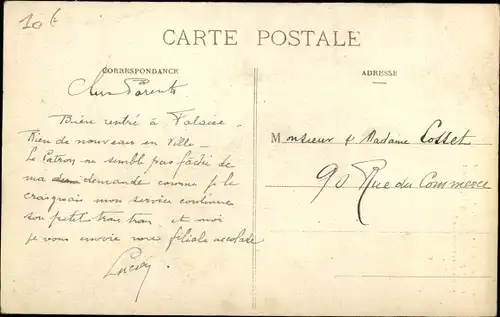 10€
CARTE POSTALE
CORRESPONDANCE
ADRESSE
Chers Parents
Bien rentré à Falaise.
Rien de nouveau en Ville –
Le Patron ne semble pas fâché de
ma demande comme je le
craignais mon service continue
son petit tran tran et moi
je vous envoie votre filiale accolade
Lucien
Monsieur & Madame Cosset
90 Rue du Commerce